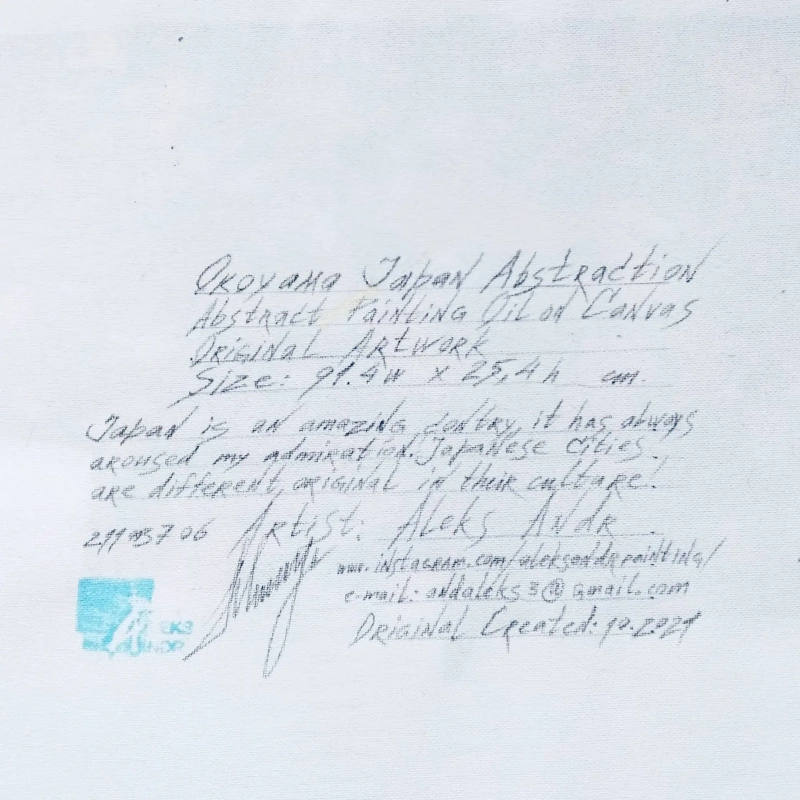 Okoyama Japan Abstraction
Abstract Painting Oil on Canvas
Original Artwork
Size: 91.4w x 25,4h cm.
Japan is an amazing contry, it has always
aroused my admiration. Japanese cities
are different, original in their culture!
Artist: Aleks Andr
www.instagram.com/aleksandrpainting/
e-mail: andaleks3@gmail.com
Original Created: 10.2021